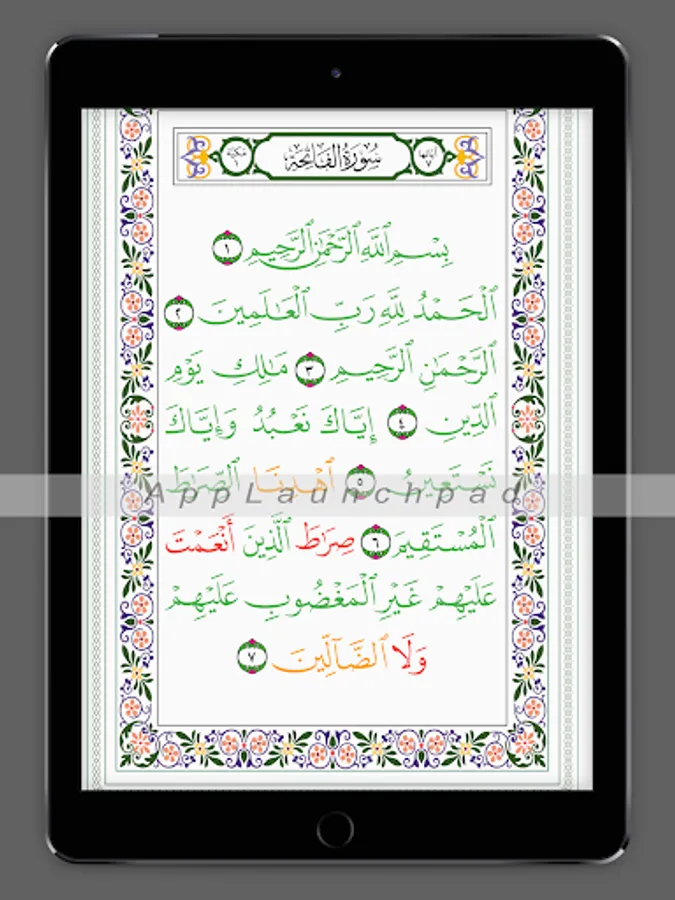 آياتها ٧ سُورَةُ الفَاتِحَةِ مكية ١
بِسْمِ ٱللَّهِ ٱلرَّحْمَٰنِ ٱلرَّحِيمِ ١
ٱلْحَمْدُ لِلَّهِ رَبِّ ٱلْعَٰلَمِينَ ٢
ٱلرَّحْمَٰنِ ٱلرَّحِيمِ ٣ مَٰلِكِ يَوْمِ
ٱلدِّينِ ٤ إِيَّاكَ نَعْبُدُ وَإِيَّاكَ
نَسْتَعِينُ ٥ ٱهْدِنَا ٱلصِّرَٰطَ
AppLaunchpad
ٱلْمُسْتَقِيمَ ٦ صِرَٰطَ ٱلَّذِينَ أَنْعَمْتَ
عَلَيْهِمْ غَيْرِ ٱلْمَغْضُوبِ عَلَيْهِمْ
وَلَا ٱلضَّآلِّينَ ٧